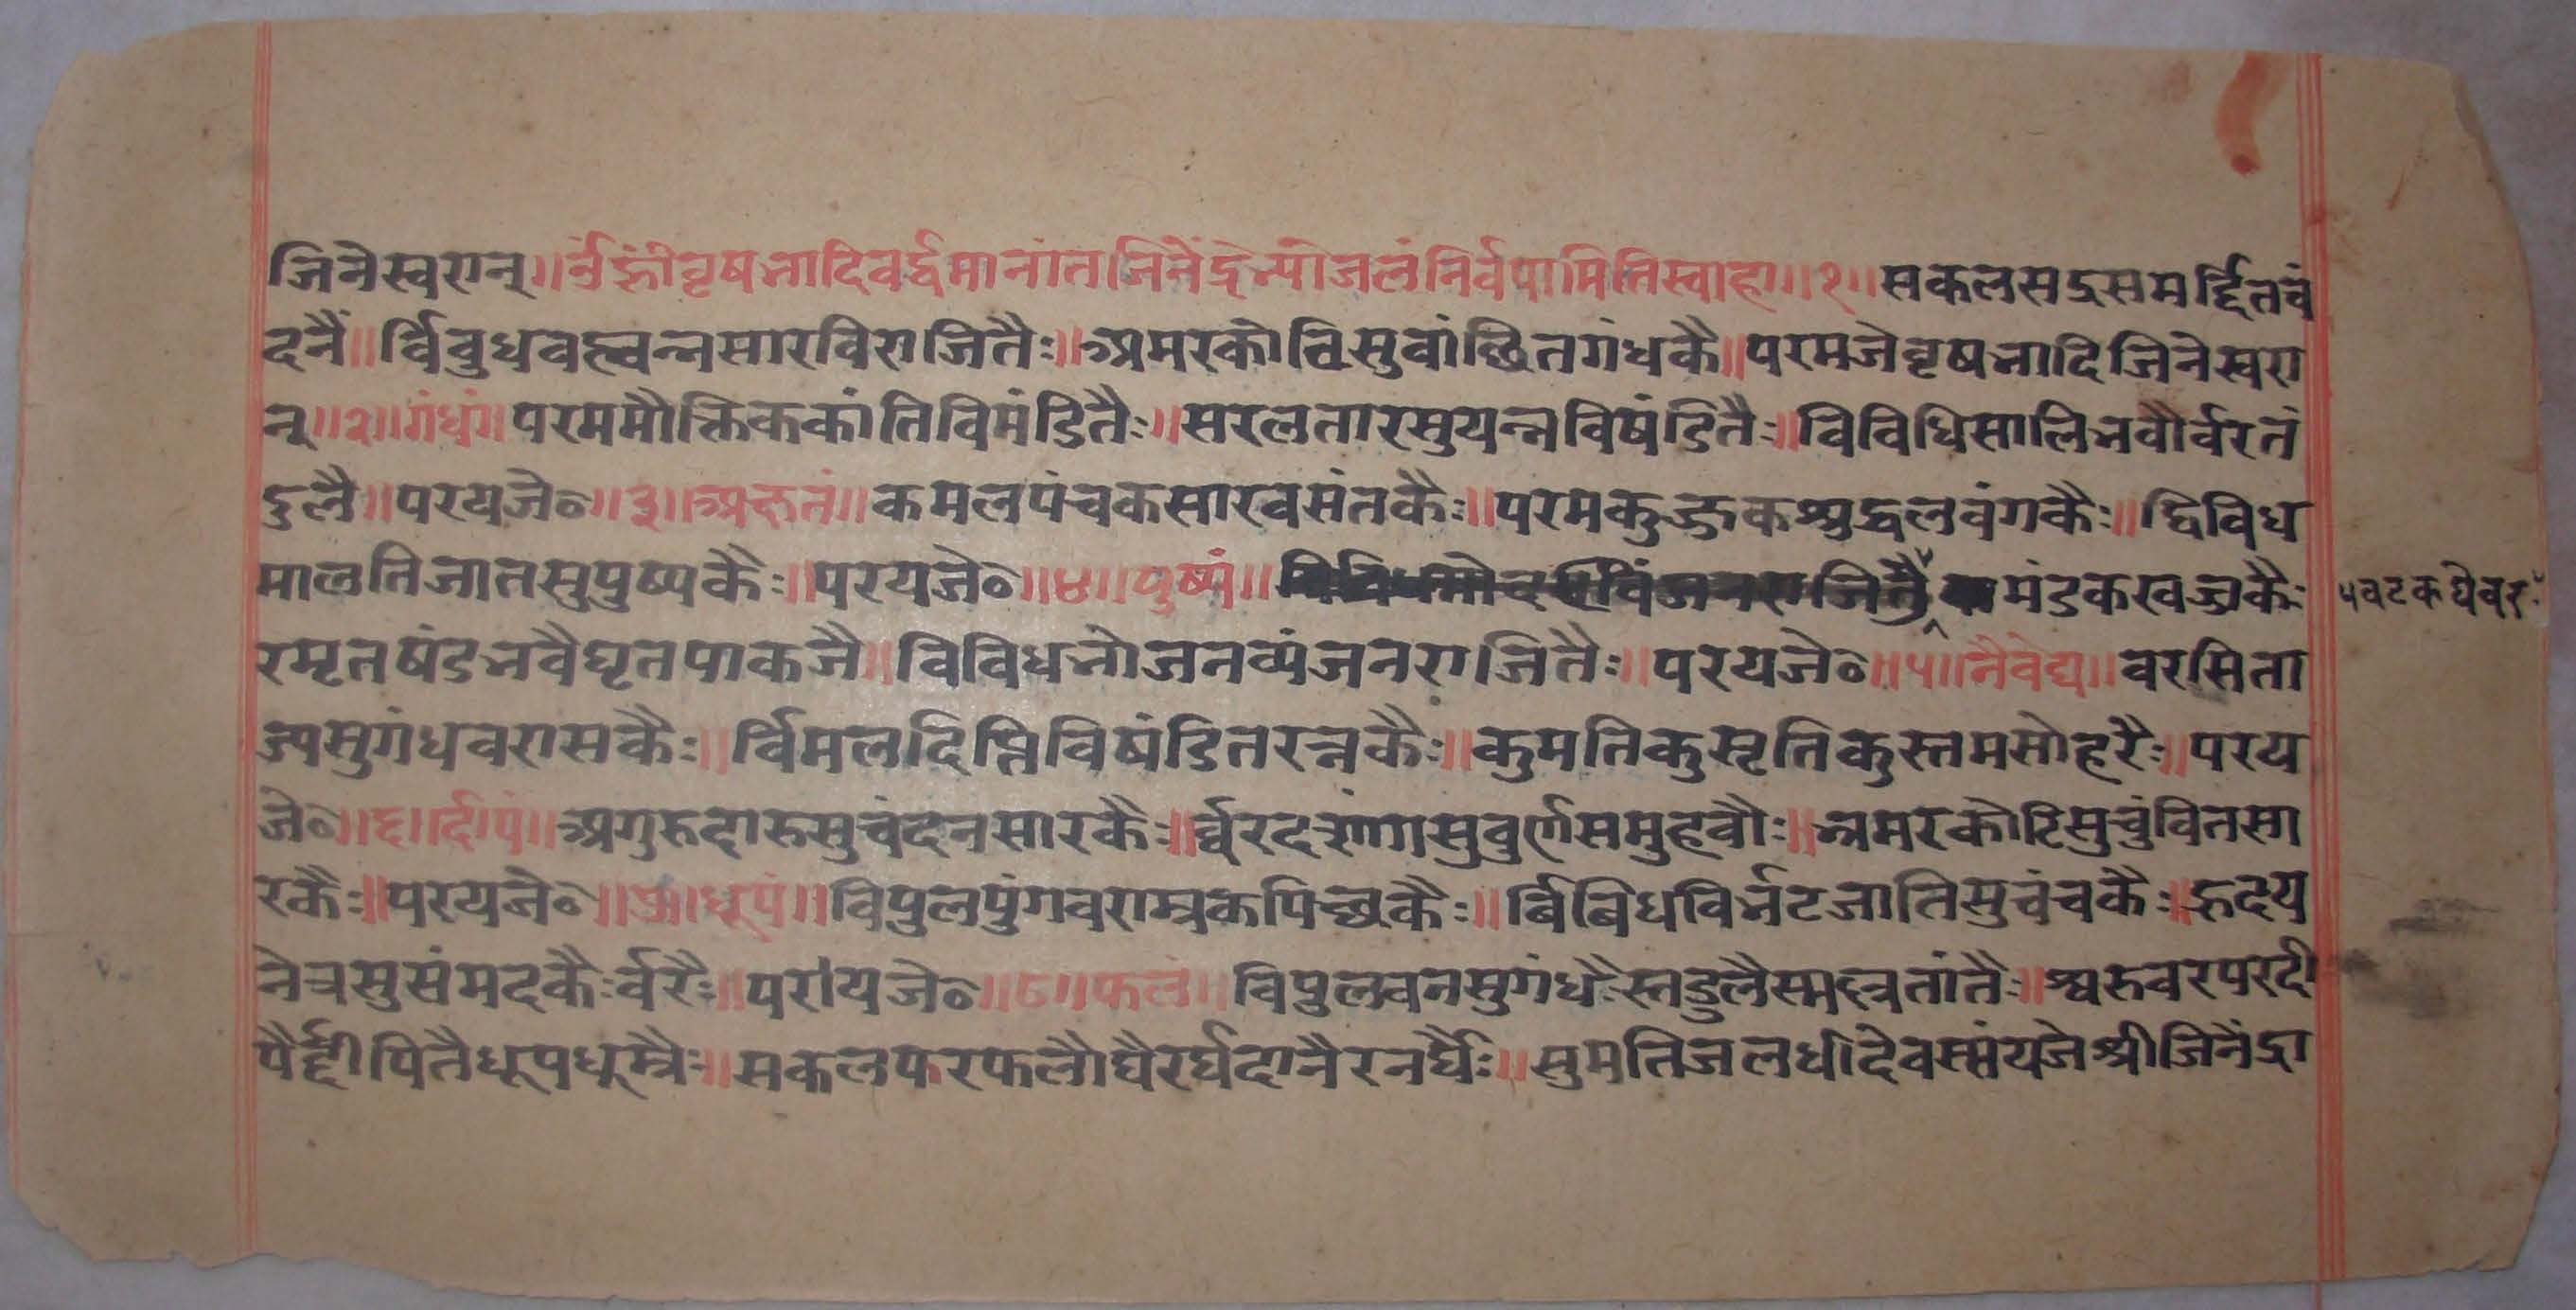 जिनेस्वरान्॥ ॐ ह्रीं वृषभादिवर्द्धमानांतजिनेंद्रेभ्यो जलं निर्वपामितिस्वाहा॥१॥ सकलसद्रसमर्द्दितवं
दनै॥र्विबुधवत्द्वन्नसारविराजितैः॥ अमरकोटिसुवांछितगंधकै॥ परमजेवृषभादिजिनेस्वरा
न्॥२॥गंधं॥ परममौक्तिककांतिविमंडितैः॥ सरलतारसुयत्नविषंडितैः॥ विविधिसालिभवौर्वरतं
डुलै॥ परयजे०॥३॥अक्षतं॥ कमलपंचकसारवसंतकैः॥ परमकुब्जकश्रुद्वलवंगकैः॥ द्विविध
मालतिजातसुपुष्पकैः॥ परयजे०॥४॥पुष्पं॥ मंडकखज्जकैः वटकघेवर
रमृतषंडभवैघृतपाकजै॥ विविधभोजनव्यंजनराजितैः॥ परयजे०॥५॥नैवेद्य॥ वरसिता
ज्यसुगंधवरासकैः॥ र्विमलदिप्तिविषंडितरत्नकैः॥ कुमतिकुसृतिकुस्तमसोहरैः॥ परय
जे०॥६॥दीपं॥ अगुरुदारुसुचंदनसारकैः॥ समुद्दवौः॥ भ्रमरकोटिसुचुंवितसा
रकैः॥ परयजे०॥७॥धूपं॥ विपुलपुंगवराम्रकपिच्छकैः॥ र्बिबिधविर्भटजातिसुचंचकैः॥ ह्रदय
नेत्रसुसंमदकैःर्वरैः॥ परायजे०॥८॥फलं॥ विपुलवनसुगंधैःस्तडुलै श्चरुवरपरदी
पैर्द्दीपितैधूपधूम्रैः॥ सकलफरफलौघैरर्घदानैरनर्घैः॥ सुमतिजलधीदेवस्संयजेश्रीजिनेंद्रा